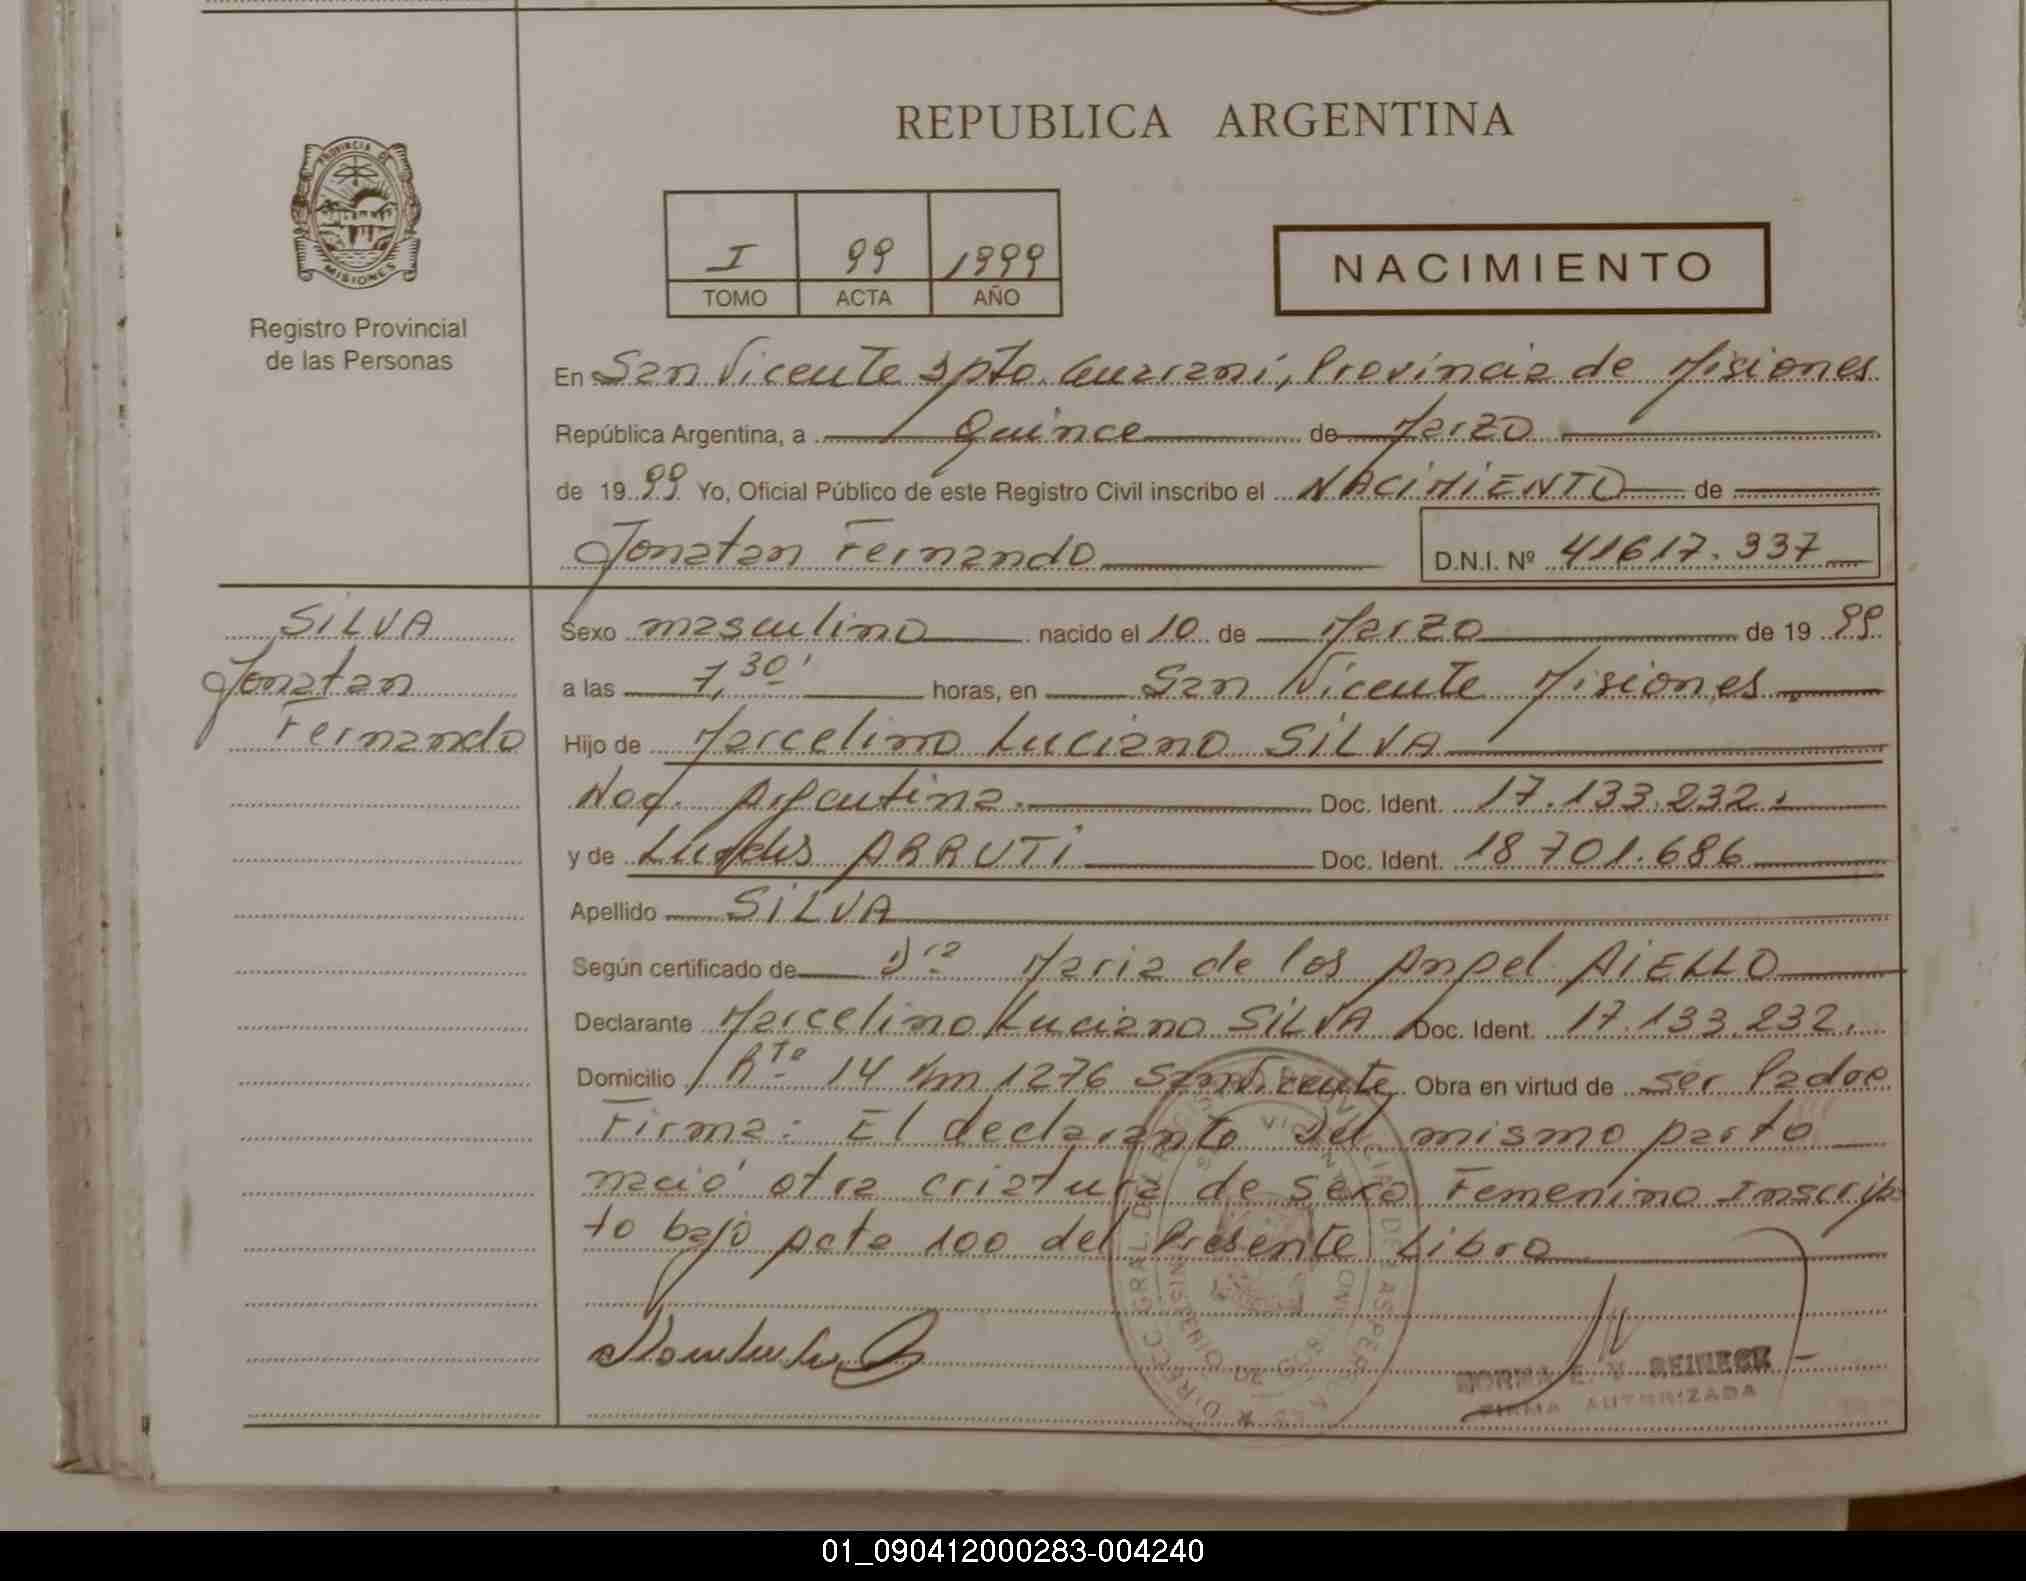 REPUBLICA ARGENTINA
PROVINCIA DE
MISIONES
Registro Provincial
de las Personas
I 99 1999
TOMO ACTA AÑO
NACIMIENTO
En San Vicente Dpto. Guaraní, Provincia de Misiones
República Argentina, a Quince de Marzo
de 19 99 Yo, Oficial Público de este Registro Civil inscribo el NACIMIENTO de
Jonatan Fernando D.N.I. Nº 41617.337
SILVA
Jonatan
Fernando
Sexo masculino nacido el 10 de Marzo de 19 99
a las 7,30' horas, en San Vicente Misiones
Hijo de Marcelino Luciano SILVA
Nac. Argentina. Doc. Ident. 17.133.232.
y de ARRUTI Doc. Ident. 18 701.686
Apellido SILVA
Según certificado de Dra Maria de los Angel AiELLO
Declarante Marcelino Luciano SILVA Doc. Ident. 17.133.232.
Domicilio Rta 14 Km 1276 San Vicente Obra en virtud de ser Padre
Firma: El declarante Del mismo parto
nació otra criatura de sexo Femenino Inscrip
to bajo Acta 100 del Presente Libro
NORMA E. V. REINECK
FIRMA AUTORIZADA
01_090412000283-004240